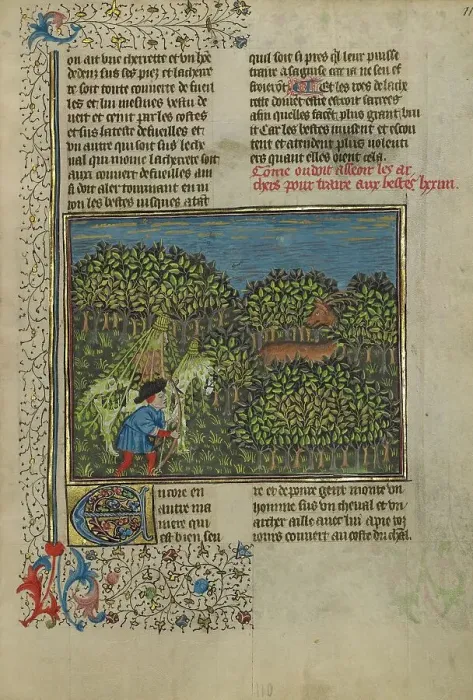 on ait vne cherrete et vn hõe
dedens sus ses piez et la cherre
te soit toute couuerte de fueil
les et lui mesmes vestu de
vert et ceint par les costes
et sus la teste de fueilles et
vn autre qui soit sus le che
ual qui moine la cherrete soit
aussi couuert de fueilles
si doit aler tournoiant enui
ron les bestes iusques a tãt
quil soit si pres ql leur puisse
traire a sa guise car ia ne sen ef
froieront Et les roes de la cher
rete doiuẽt estre sarrees
afin quelles facẽt plus grant bru
it Car les bestes musent et escou
tent et atendent plus volenti
ers quant elles oient cela.
Cõme on doit asseoir les ar
chers pour traire aux bestes
Encore en
autre ma
niere qui
est bien seu
re et de poure gent monte vn
homme sus vn cheual et vn
archer aille auec lui a pie tou
iours couuert au coste du chãl.
110